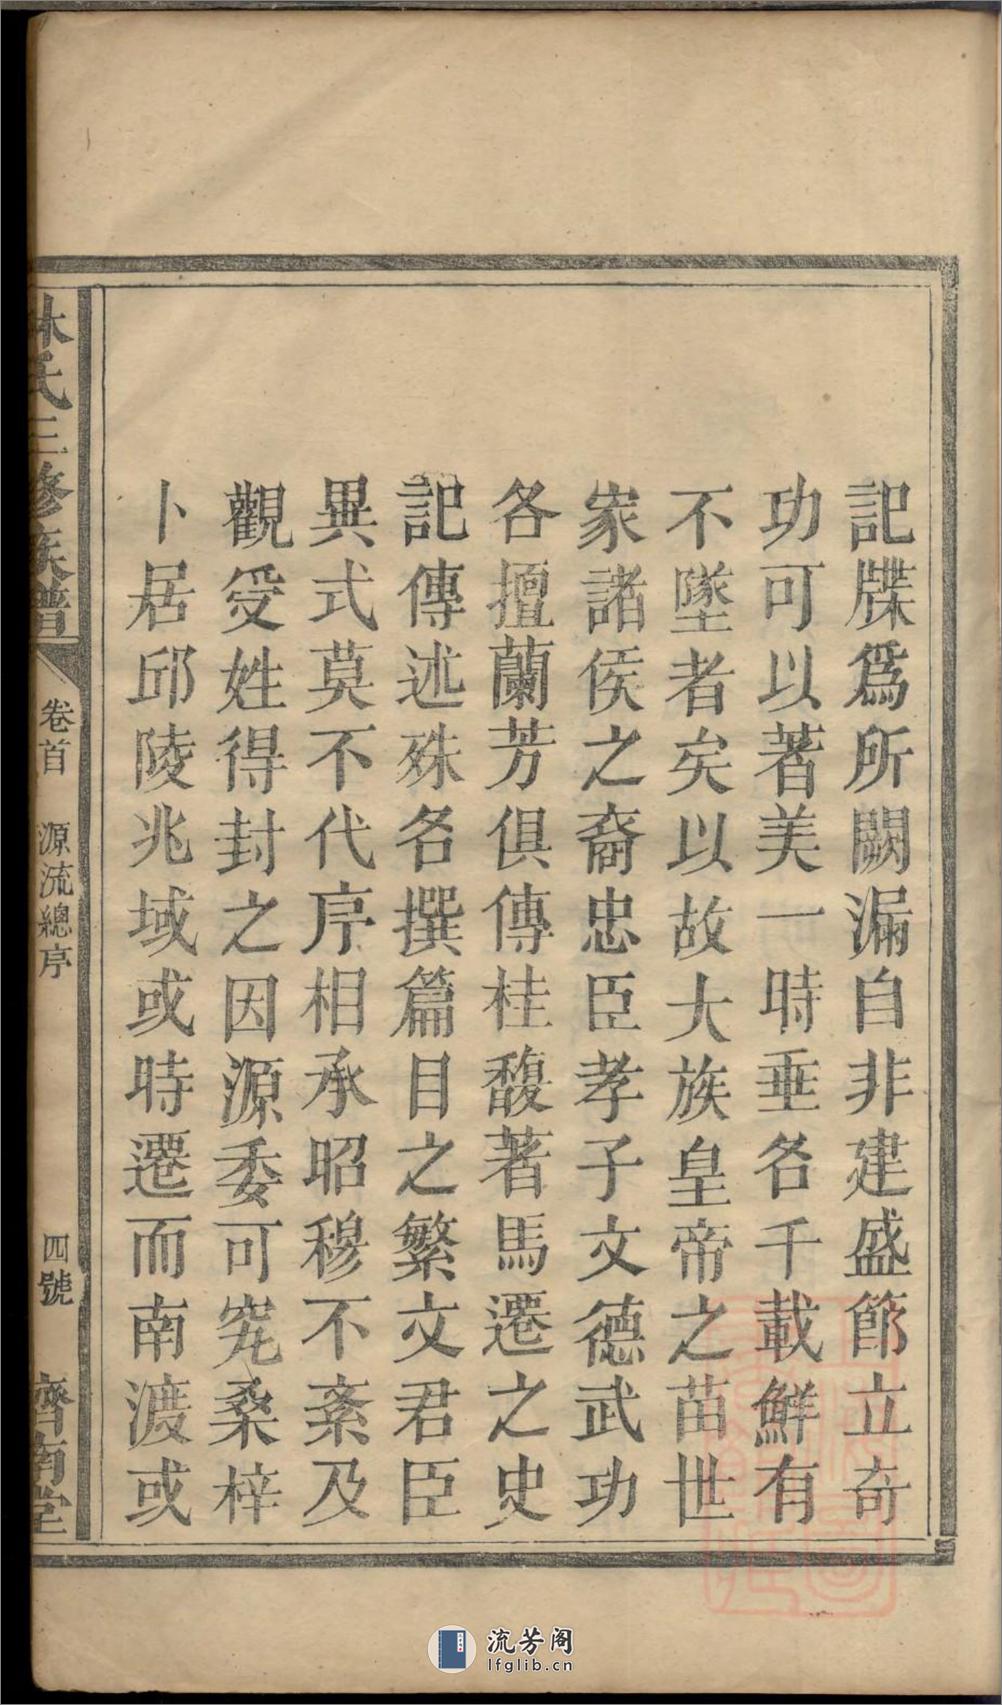 記牒爲所闕漏自非建盛節立奇
功可以著美一時垂名千載鮮有
不墜者矣以故大族皇帝之苗世
家諸侯之裔忠臣孝子文德武功
各擅蘭芳俱傳桂馥著馬遷之史
記傳述殊名撰篇目之繁文君臣
異式莫不代序相承昭穆不紊及
觀受姓得封之因源委可究桑梓
卜居邱陵兆域或時遷而南渡或
林氏三修族譜
卷首 源流總序
四號
齊南堂
流芳阁
lfglib.cn